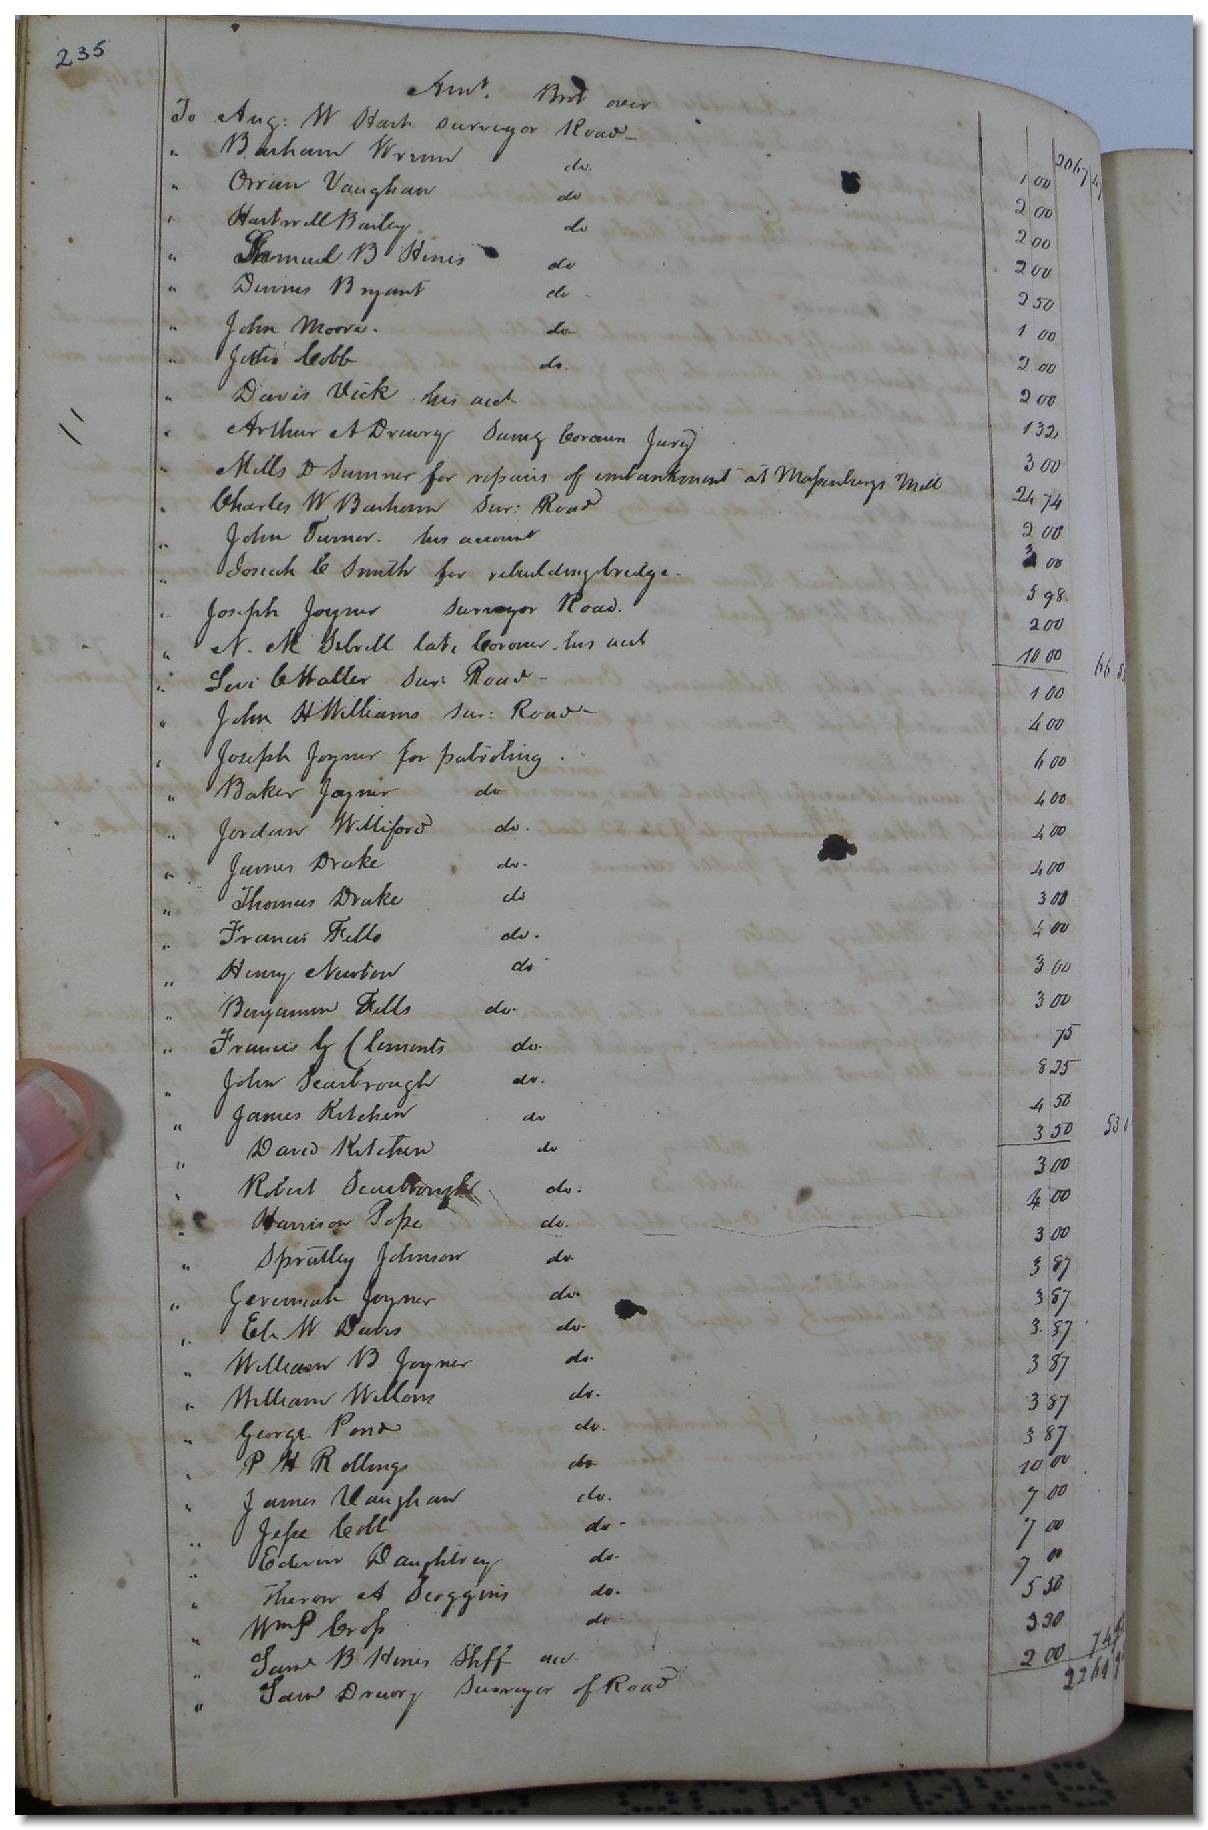 235
Amt. Brot over 2067
To Aug: W Hart surveyor Road 1 00
" Barham Wrenn do. 2 00
" Orran Vaughan do 2 00
" Hartwell Bailey do 2 00
" Samuel B Hines do 2 50
" Dennis Bryant do 1 00
" John Moore. do 2 00
" Cobb do. 2 00
" Davis Vick his act 1 32
" Arthur A Drewry Sumg Coroner Jury 3 00
" Mills D Sumner for repairs of embankment at Massenburgs Mill 24 74
" Charles W Barham Sur: Road 2 00
" John Turner. his account 3 00
" Josiah C Smith for rebuilding bridge. 5 98
" Joseph Joyner Surveyor Road. 2 00
" N. M Sebrell late Coroner his act 10 00 66
" Levi C Waller Sur: Road 1 00
" John H Williams Sur: Road 4 00
" Joseph Joyner for patroling. 6 00
" Baker Joyner do 4 00
" Jordan Williford do. 4 00
" James Drake do. 4 00
" Thomas Drake do 3 00
" Francis Fells do. 4 00
" Henry Newton do 3 00
" Benjamin Fells do. 3 00
" Francis G Clements do. 75
" John Scarbrough do. 8 25
" James Kitchen do 4 50
" David Kitchen do 3 50 53
" Robert Scarbrough do. 3 00
" Harrison Pope do. 4 00
" Spratley Johnson do 3 00
" Jeremiah Joyner do. 3 87
" Eli W Davis do. 3 87
" William B Joyner do. 3 87
" William Willons do. 3 87
" George Pond do. 3 87
" P H Rollings do 3 87
" James Vaughan do. 10 00
" Jesse Cobb do 7 00
" Edwin Daughtrey do. 7 00
" Theron A Scoggins do. 7 00
" Wm P Cross do 5 50
" Saml B Hines Shff act 3 20
" Saml Drewry Surveyor of Road 2 00 74
2261